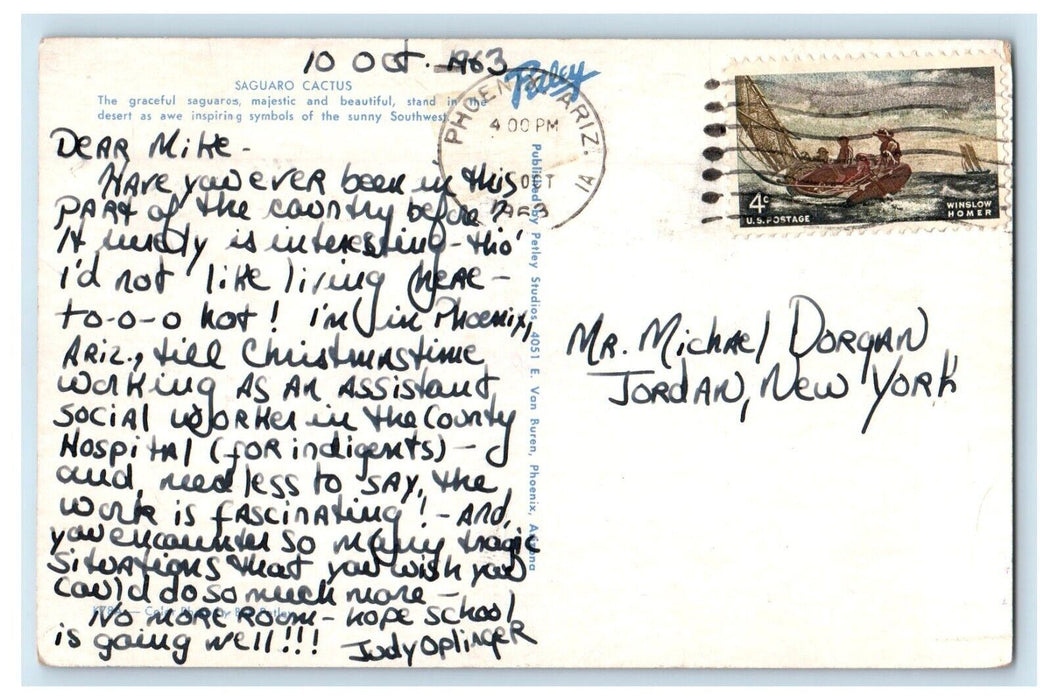 10 Oct. 1963
SAGUARO CACTUS
The graceful saguaros, majestic and beautiful, stand in the
desert as awe inspiring symbols of the sunny Southwest.
Petley
PHOENIX, ARIZ.
4 00 PM
OCT
1963
1A
4¢
U.S. POSTAGE
WINSLOW
HOMER
Dear Mike -
Have you ever been in this
part of the country before?
It surely is interesting - tho'
I'd not like living here -
to-o-o hot! I'm in Phoenix,
Ariz., till Christmastime
working as an assistant
social worker in the County
Hospital (for indigents) -
and, needless to say, the
work is fascinating! - And,
you encounter so many tragic
situations that you wish you
could do so much more -
No more room - hope school
is going well!!! Judy Oplinger
Published by Petley Studios, 4051 E. Van Buren, Phoenix, Arizona
Mr. Michael Dorgan
Jordan, New York
— Color Photo by Bob Petley